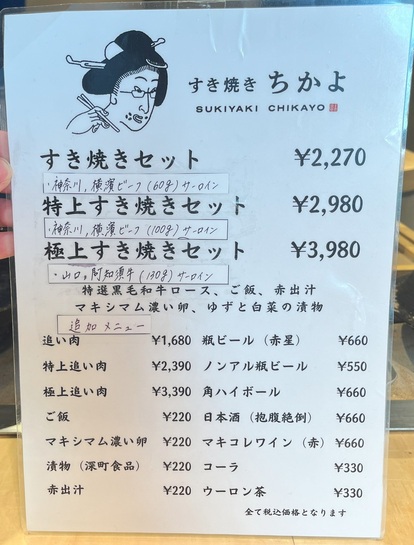 すき焼き ちかよ
SUKIYAKI CHIKAYO
すき焼きセット ¥2,270
・神奈川,横濱ビーフ(60g)サーロイン
特上すき焼きセット ¥2,980
・神奈川,横濱ビーフ(100g)サーロイン
極上すき焼きセット ¥3,980
・山口。阿知須牛(130g)サーロイン
特選黒毛和牛ロース、ご飯、赤出汁
マキシマム濃い卵、ゆずと白菜の漬物
追加メニュー
追い肉 ¥1,680 瓶ビール(赤星) ¥660
特上追い肉 ¥2,390 ノンアル瓶ビール ¥550
極上追い肉 ¥3,390 角ハイボール ¥660
ご飯 ¥220 日本酒(抱腹絶倒) ¥660
マキシマム濃い卵 ¥220 マキコレワイン(赤) ¥660
漬物(深町食品) ¥220 コーラ ¥330
赤出汁 ¥220 ウーロン茶 ¥330
全て税込価格となります